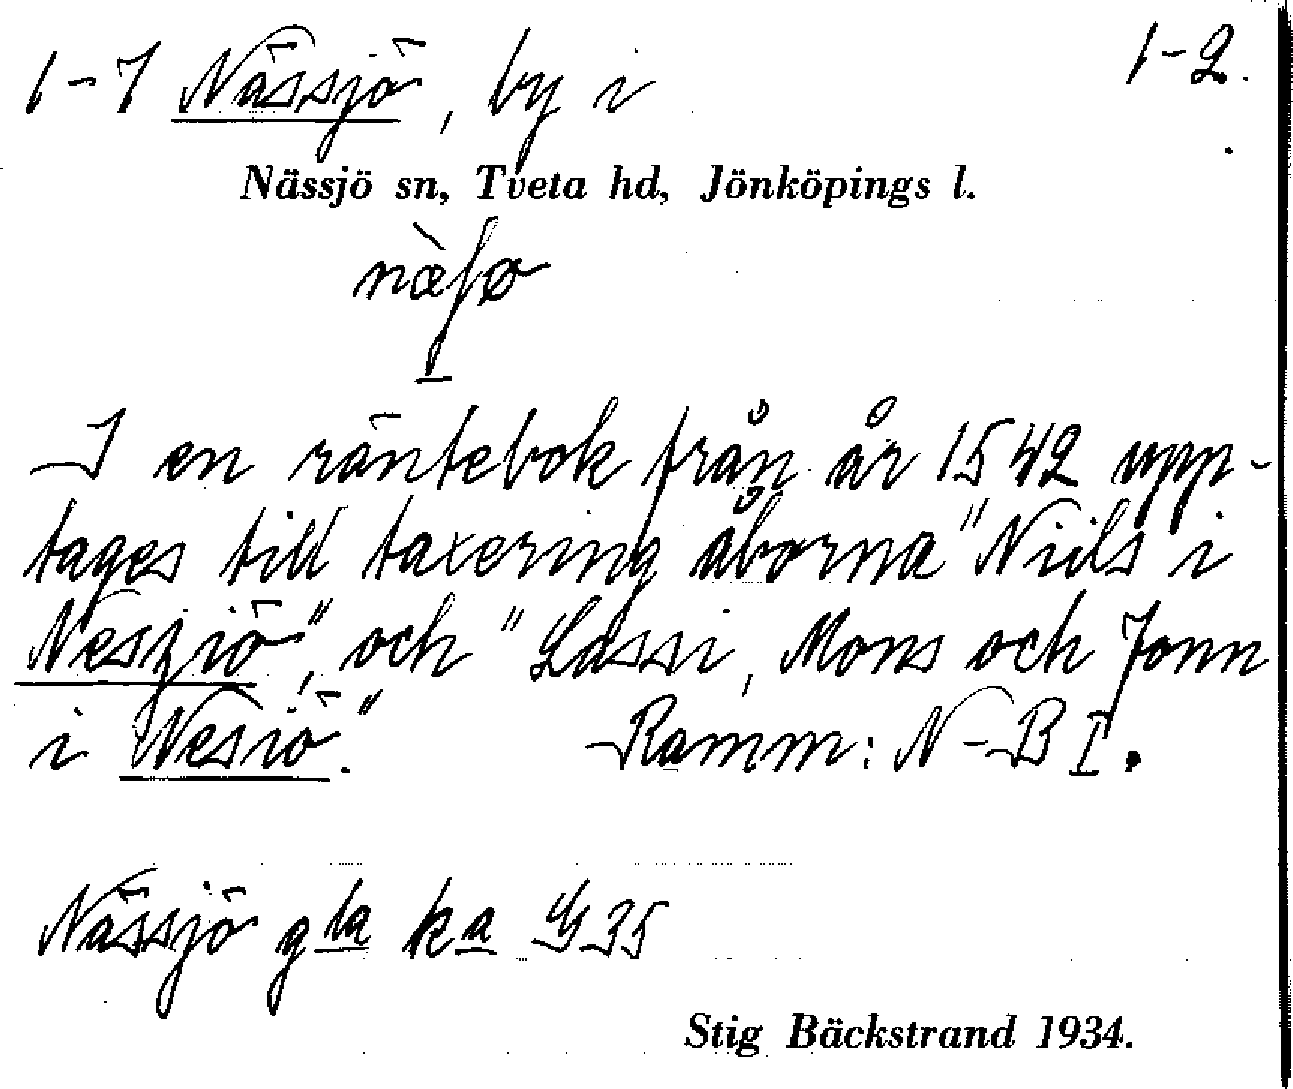 1-7 Nässjö, by i 1-2.
Nässjö sn, Tveta hd, Jönköpings l.
nœ̀ʃø
I en räntebok från år 1542 upp-
tages till taxering åborna "Niils i
Neszjö", och "Lassi, Mons och Jonn
i Nesiö." Ramm: N-B I.
Nässjö gla ka G35
Stig Bäckstrand 1934.